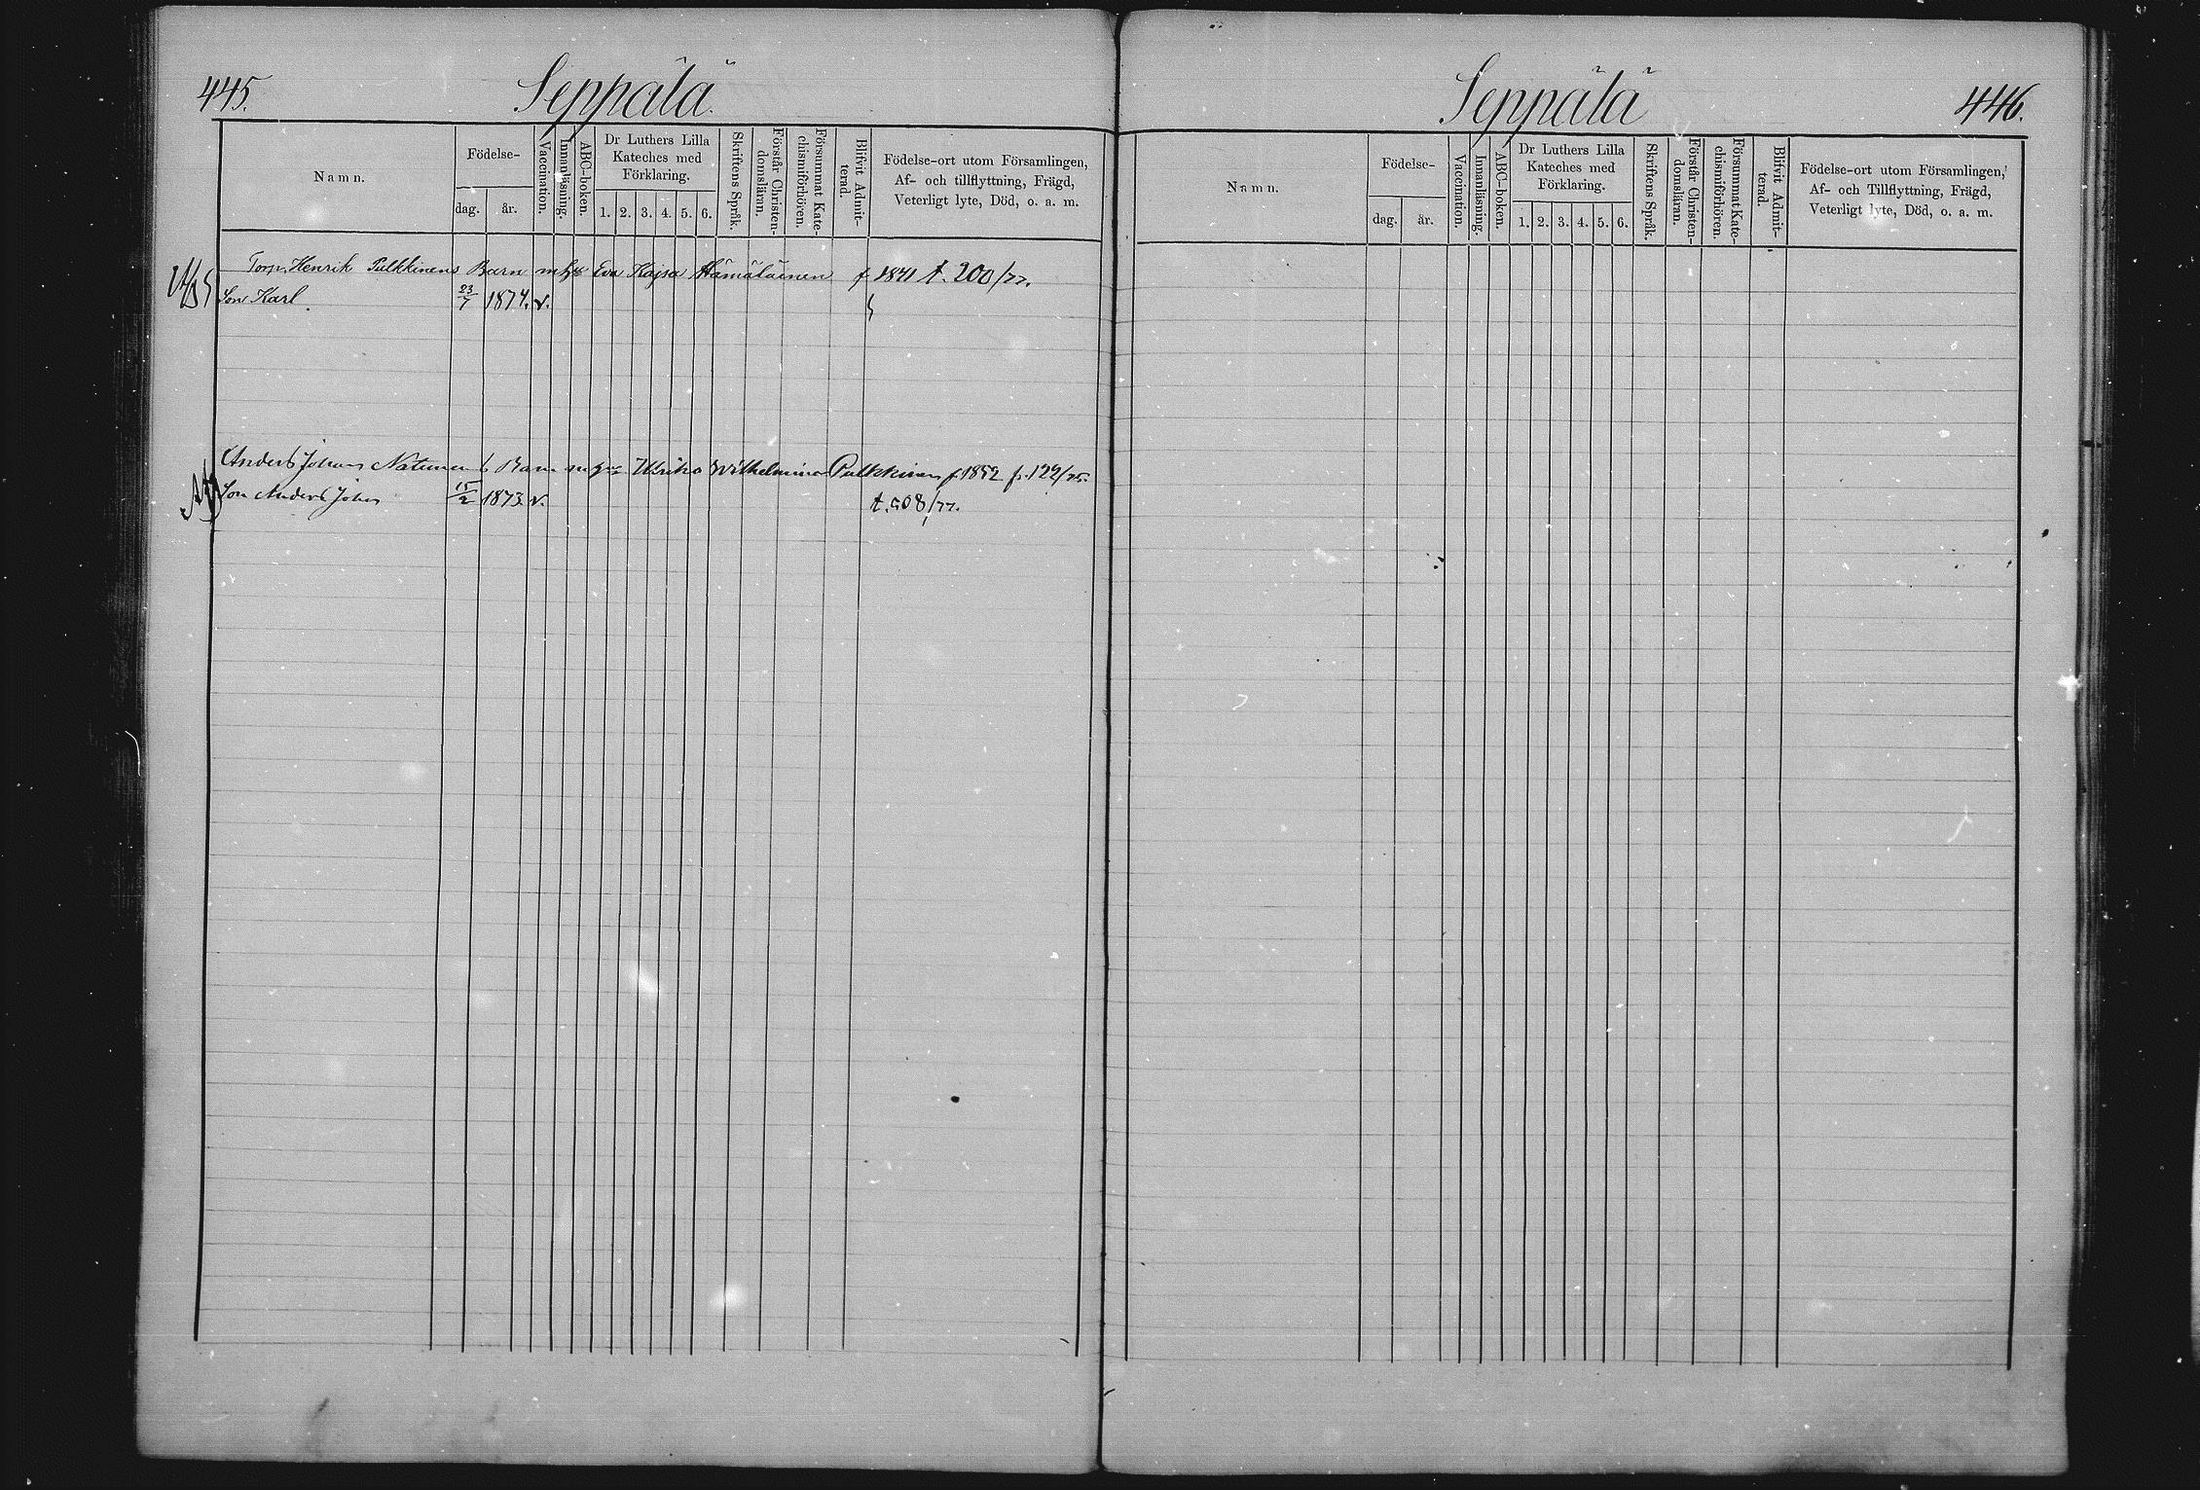 445.
Seppälä.
Namn.
Födelse-
dag.
år.
Vaccination.
Innanläsning.
ABC-boken.
Dr Luthers Lilla
Kateches med
Förklaring.
1. 2. 3. 4. 5. 6.
Skriftens Språk.
Förstår Christen-
domsläran.
Försummat Kate-
chismiförhören.
Blifvit Admit-
terad.
Födelse-ort utom Församlingen,
Af- och tillflyttning, Frägd,
Veterligt lyte, Död, o. a. m.
Torp. Henrik Pulkkinens Barn m. Eva Kajsa Hämäläinen f 1841 t. 200/77.
Son Karl 23/7 1874. v.
Anders Johans Natunen Barn m. Ulrika Wilhelmina Pulkkinen f. 1852 fr. 122/75.
Son Anders Johan 15/2 1873. v. t. 508/77.
Seppälä
446.
Namn.
Födelse-
dag.
år.
Vaccination.
Innanläsning.
ABC-boken.
Dr Luthers Lilla
Kateches med
Förklaring.
1. 2. 3. 4. 5. 6.
Skriftens Språk.
Förstår Christen-
domsläran.
Försummat Kate-
chismiförhören.
Blifvit Admit-
terad.
Födelse-ort utom Församlingen,
Af- och Tillflyttning, Frägd,
Veterligt lyte, Död, o. a. m.